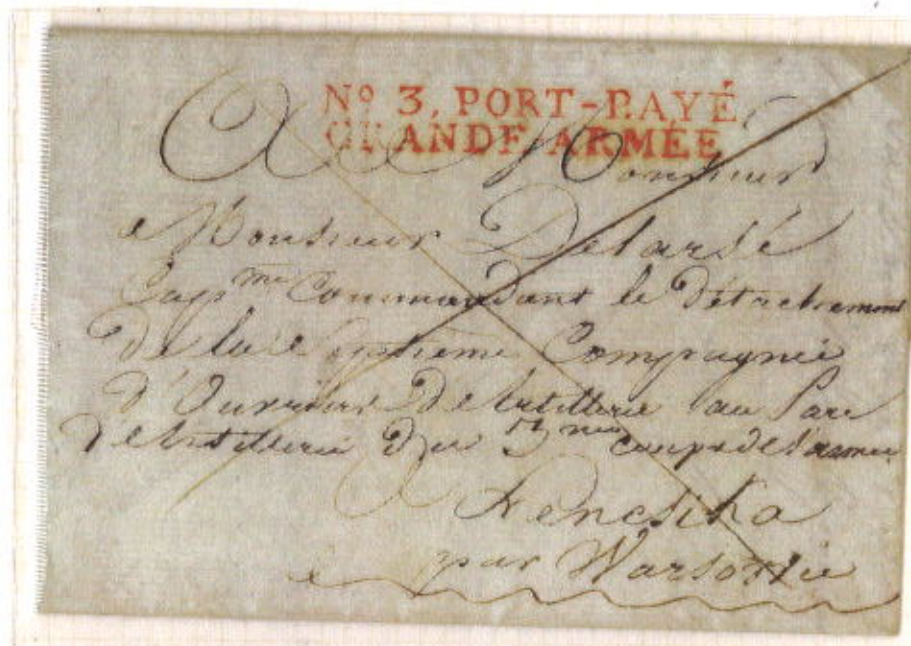 Nº 3, PORT-PAYÉ
GRANDE ARMÉE
A Monsieur
Monsieur Delarsé
Cap me Commandant le Détachement
De la Compagnie
d'Ouvriers De lartillerie au Parc
De lartillerie Du corps de l'armée
A
par Warsovie